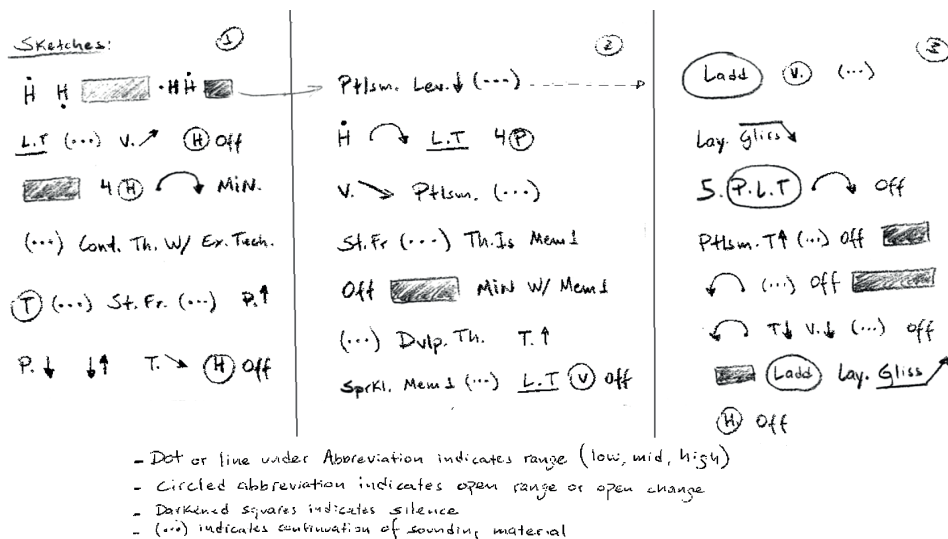 Sketches: 1
H H ·HH
L.T (...) V. H Off
4 H MIN.
(...) Cont. Th. W/ Ex. Tech.
T (...) St. Fr. (...) P.↑
P.↓ ↓↑ T.↘ H Off
2
Ptlsm. Lev.↓ (...)
H L.T 4 P
V.↘ Ptlsm. (...)
St. Fr (...) Th. Is Mem 1
Off MIN W/ Mem 1
(...) Dvlp. Th. T.↑
Sprkl. Mem 1 (...) L.T V Off
3
Ladd V. (...)
Lay. Gliss
5. P.L.T Off
Ptlsm. T↑ (...) Off
(...) Off
T↓ V.↓ (...) Off
Ladd Lay. Gliss
H Off
- Dot or line under Abbreviation indicates range (low, mid, high)
- Circled abbreviation indicates open range or open change
- Darkened squares indicates silence
- (...) indicates continuation of sounding material